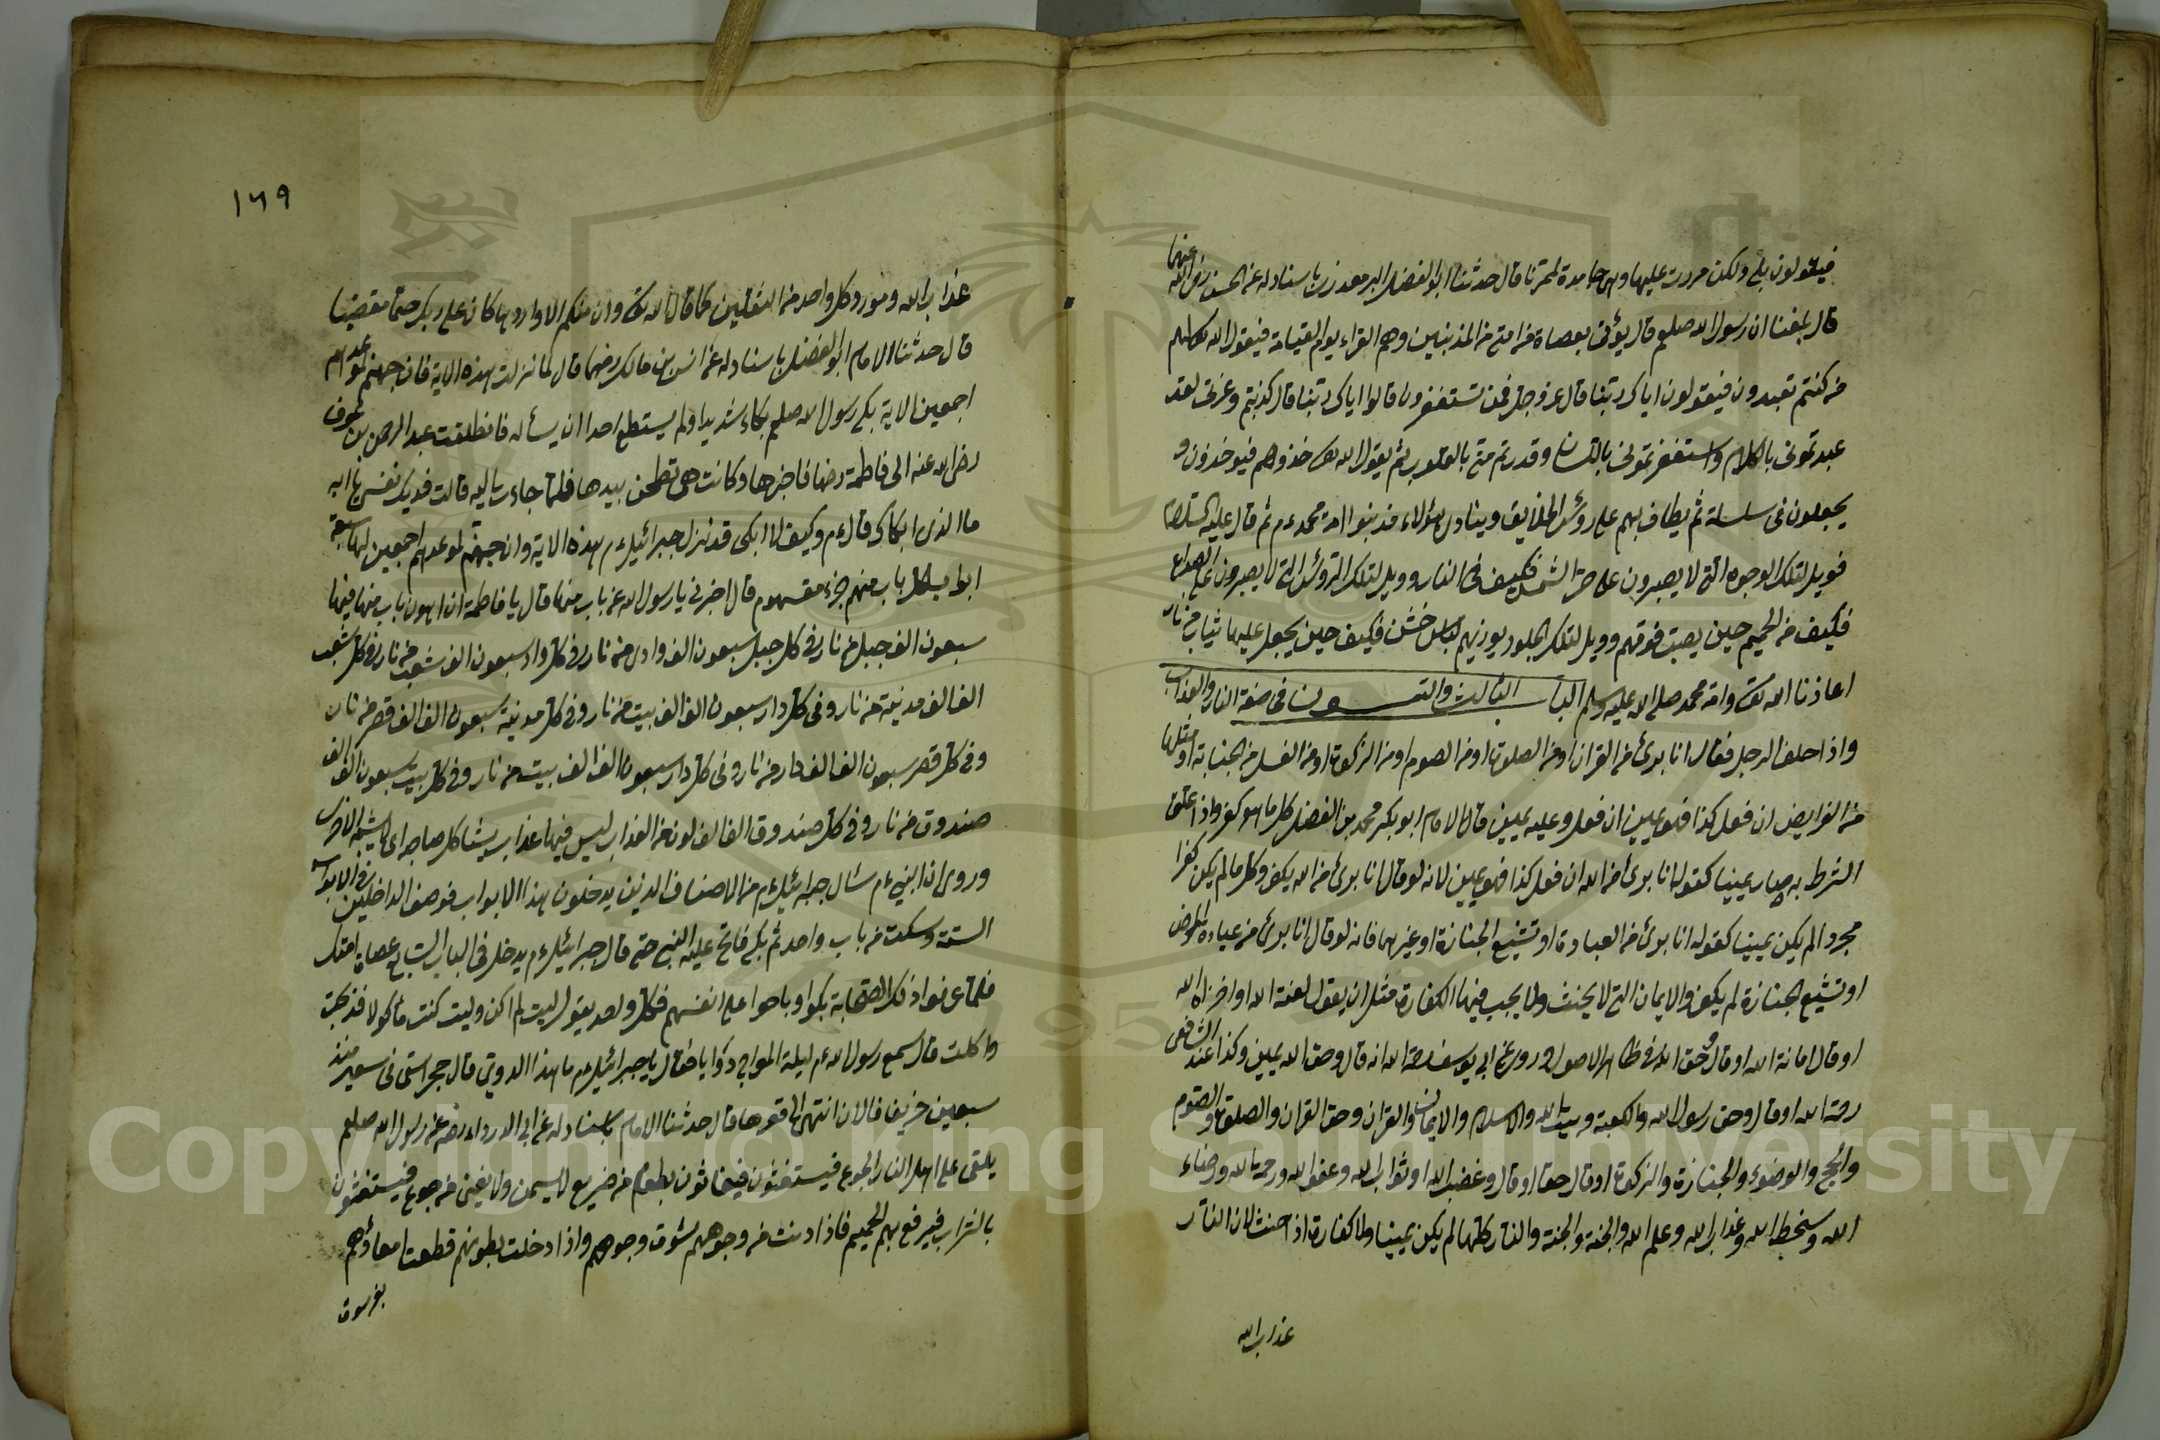 فيقولون بلى ولكن مررت عليها وهي جامدة لمحرتنا قال حدثنا ابو الفضل البرمعدزي باسناد له عن الحسن رضي الله عنهما
قال بلغنا ان رسول الله صلعم قال يؤتى بعصاة من امتي من المذنبين وهم القراء يوم القيامة فيقول الله تعالى لهم
من كنتم تعبدون فيقولون اياك ربنا قال عز وجل فمن تستغفرون قالوا اياك ربنا قال كذبتم وعزتي لقد
عبدتموني بالكلام واستغفرتموني باللسان وقدرتم متي بالقلوب ثم يقول الله تعالى خذوهم فيوخذون و
يجعلون في سلسلة ثم يطاف بهم على رؤس الخلايق وينادى هؤلاء مذنبوا امة محمد ءم ثم قال عليه السلام
فويل لتلك الوجوه التي لا يصبرون على حر الشمس فكيف في النار وويل لتلك الرؤس التي لا يصبرون على الصداع
فكيف من الحميم حين يصب فوقهم وويل لتلك الجلود يوزيهم لباس خشن فكيف حين يجعل عليها ثياب من نار
اعاذنا الله تعالى وامة محمد صلى الله عليه وسلم الباب الثالث والتسعون في صفة النار والعذاب
واذا حلف الرجل فقال انا بريء من القران او من الصلوة او من الصوم او من الزكوة او من الغسل من الجنابة او مثلها
من الفرايض ان فعل كذا فهو يمين ان فعل وعليه يمين قال الامام ابو بكر محمد بن الفضل كل ما هو كفر واذا علق
الشرط به صار يمينا كقوله انا بريء من الله ان فعل كذا فهو يمين لانه لو قال انا بريء من الله يكفر وكل ما لم يكن كفرا
مجردا لم يكن يمينا كقوله انا بريء من العبادة او تشييع الجنازة او غيرهما فانه لو قال انا بريء من عيادة المريض
او تشييع الجنازة لم يكفر والايمان التي لا يحنث ولا يجب فيها الكفارة مثل ان يقول لعنة الله او اخزاه الله
او قال امانة الله او قال وحق الله في ظاهر الاصول وروي عن ابي يوسف رحمة الله انه قال وحق الله يمين وكذا عند الشافعي
رحمة الله او قال وحق رسول الله والكعبة وبيت الله والاسلام والايمان والقران وحق القران والصلوة والصوم
والحج والوضوء والجنازة والزكوة او قال حقا او قال وغضب الله او ثواب الله وعفو الله ورحمة الله ورضاء
الله وسخط الله وعذاب الله وعلم الله والجنة والنار كلها لم يكن يمينا ولا كفارة اذا حنث لان النار
عذاب الله
١٦٩
عذاب الله ومورد كل واحد من الثقلين كما قال الله تعالى وان منكم الا واردها كان على ربك حتما مقضيا
قال حدثنا الامام ابو الفضل باسناد له عن انس بن مالك رضهما قال لما نزلت هذه الاية فان جهنم لموعدهم
اجمعين الاية بكى رسول الله صلعم بكاء شديدا ولم يستطع احدا ان يسأله فانطلقت عبد الرحمن بن عوف
رضي الله عنه الى فاطمة رضها فاخبرها وكانت هي تطحن بيدها فلما جاءت اليه قالت فديك نفسي يا ابه
ما الذي ابكاك قال ءم وكيف لا ابكى قد نزل جبرائيل ءم بهذه الاية وان جهنم لموعدهم اجمعين لها سبعة
ابواب لكل باب منهم جزء مقسوم قال اخبرني يا رسول الله عن باب منها قال يا فاطمة ان اهون باب منها فيها
سبعون الف جبل من نار في كل جبل سبعون الف وادى من نار في كل واد سبعون الف شعب من نار في كل شعب
الف الف مدينة من نار وفي كل دار سبعون الف الف بيت من نار وفي كل مدينة سبعون الف الف قصر من نار
وفي كل قصر سبعون الف الف دار من نار وفي كل دار سبعون الف الف بيت من نار وفي كل بيت سبعون الف الف
صندوق من نار وفي كل صندوق الف الف لون من العذاب ليس فيها عذاب يشاكل صاحبه اى لا يشبه الاخر
وروى ان النبي ءم سال جبرائيل ءم من الاصناف الذين يدخلون هذا الابواب فوصف الداخلين في الابواب
الستة وسكت من باب واحد ثم بكى فالح عليه النبي حتى قال جبرائيل ءم يدخل في الباب السابع عصاة امتك
فلما عرفوا ذلك الصحابة بكوا وناحوا على انفسهم فكل واحد يقول ليت لم اكن وليت كنت مأكولا فذبحت
واكلت قال سمع رسول الله ءم ليلة المعراج دويا فقال يا جبرائيل ءم ما هذا الدوي قال حجر استى في سعير منذ
سبعين خريفا فالان انتهى الى قعرها قال حدثنا الامام باسناد له عن ابي الدرداء رضه عن رسول الله صلعم
يلقى على اهل النار الجوع فيستغيثون فيغاثون بطعام من ضريع لا يسمن ولا يغني من جوع فيستغيثون
بالشراب فيرفع بهم الحميم فاذا دنت من وجوههم شوت وجوههم واذا دخلت بطونهم قطعت امعاؤهم